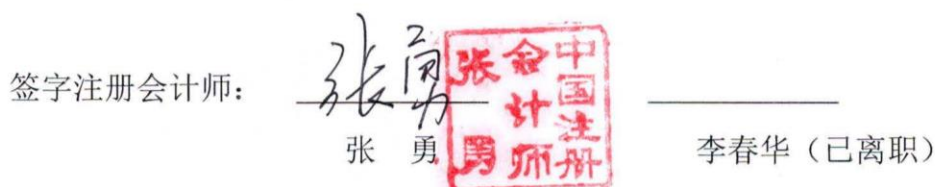 签字注册会计师： 张勇 中国注册会计师 张勇
张 勇 李春华（已离职）